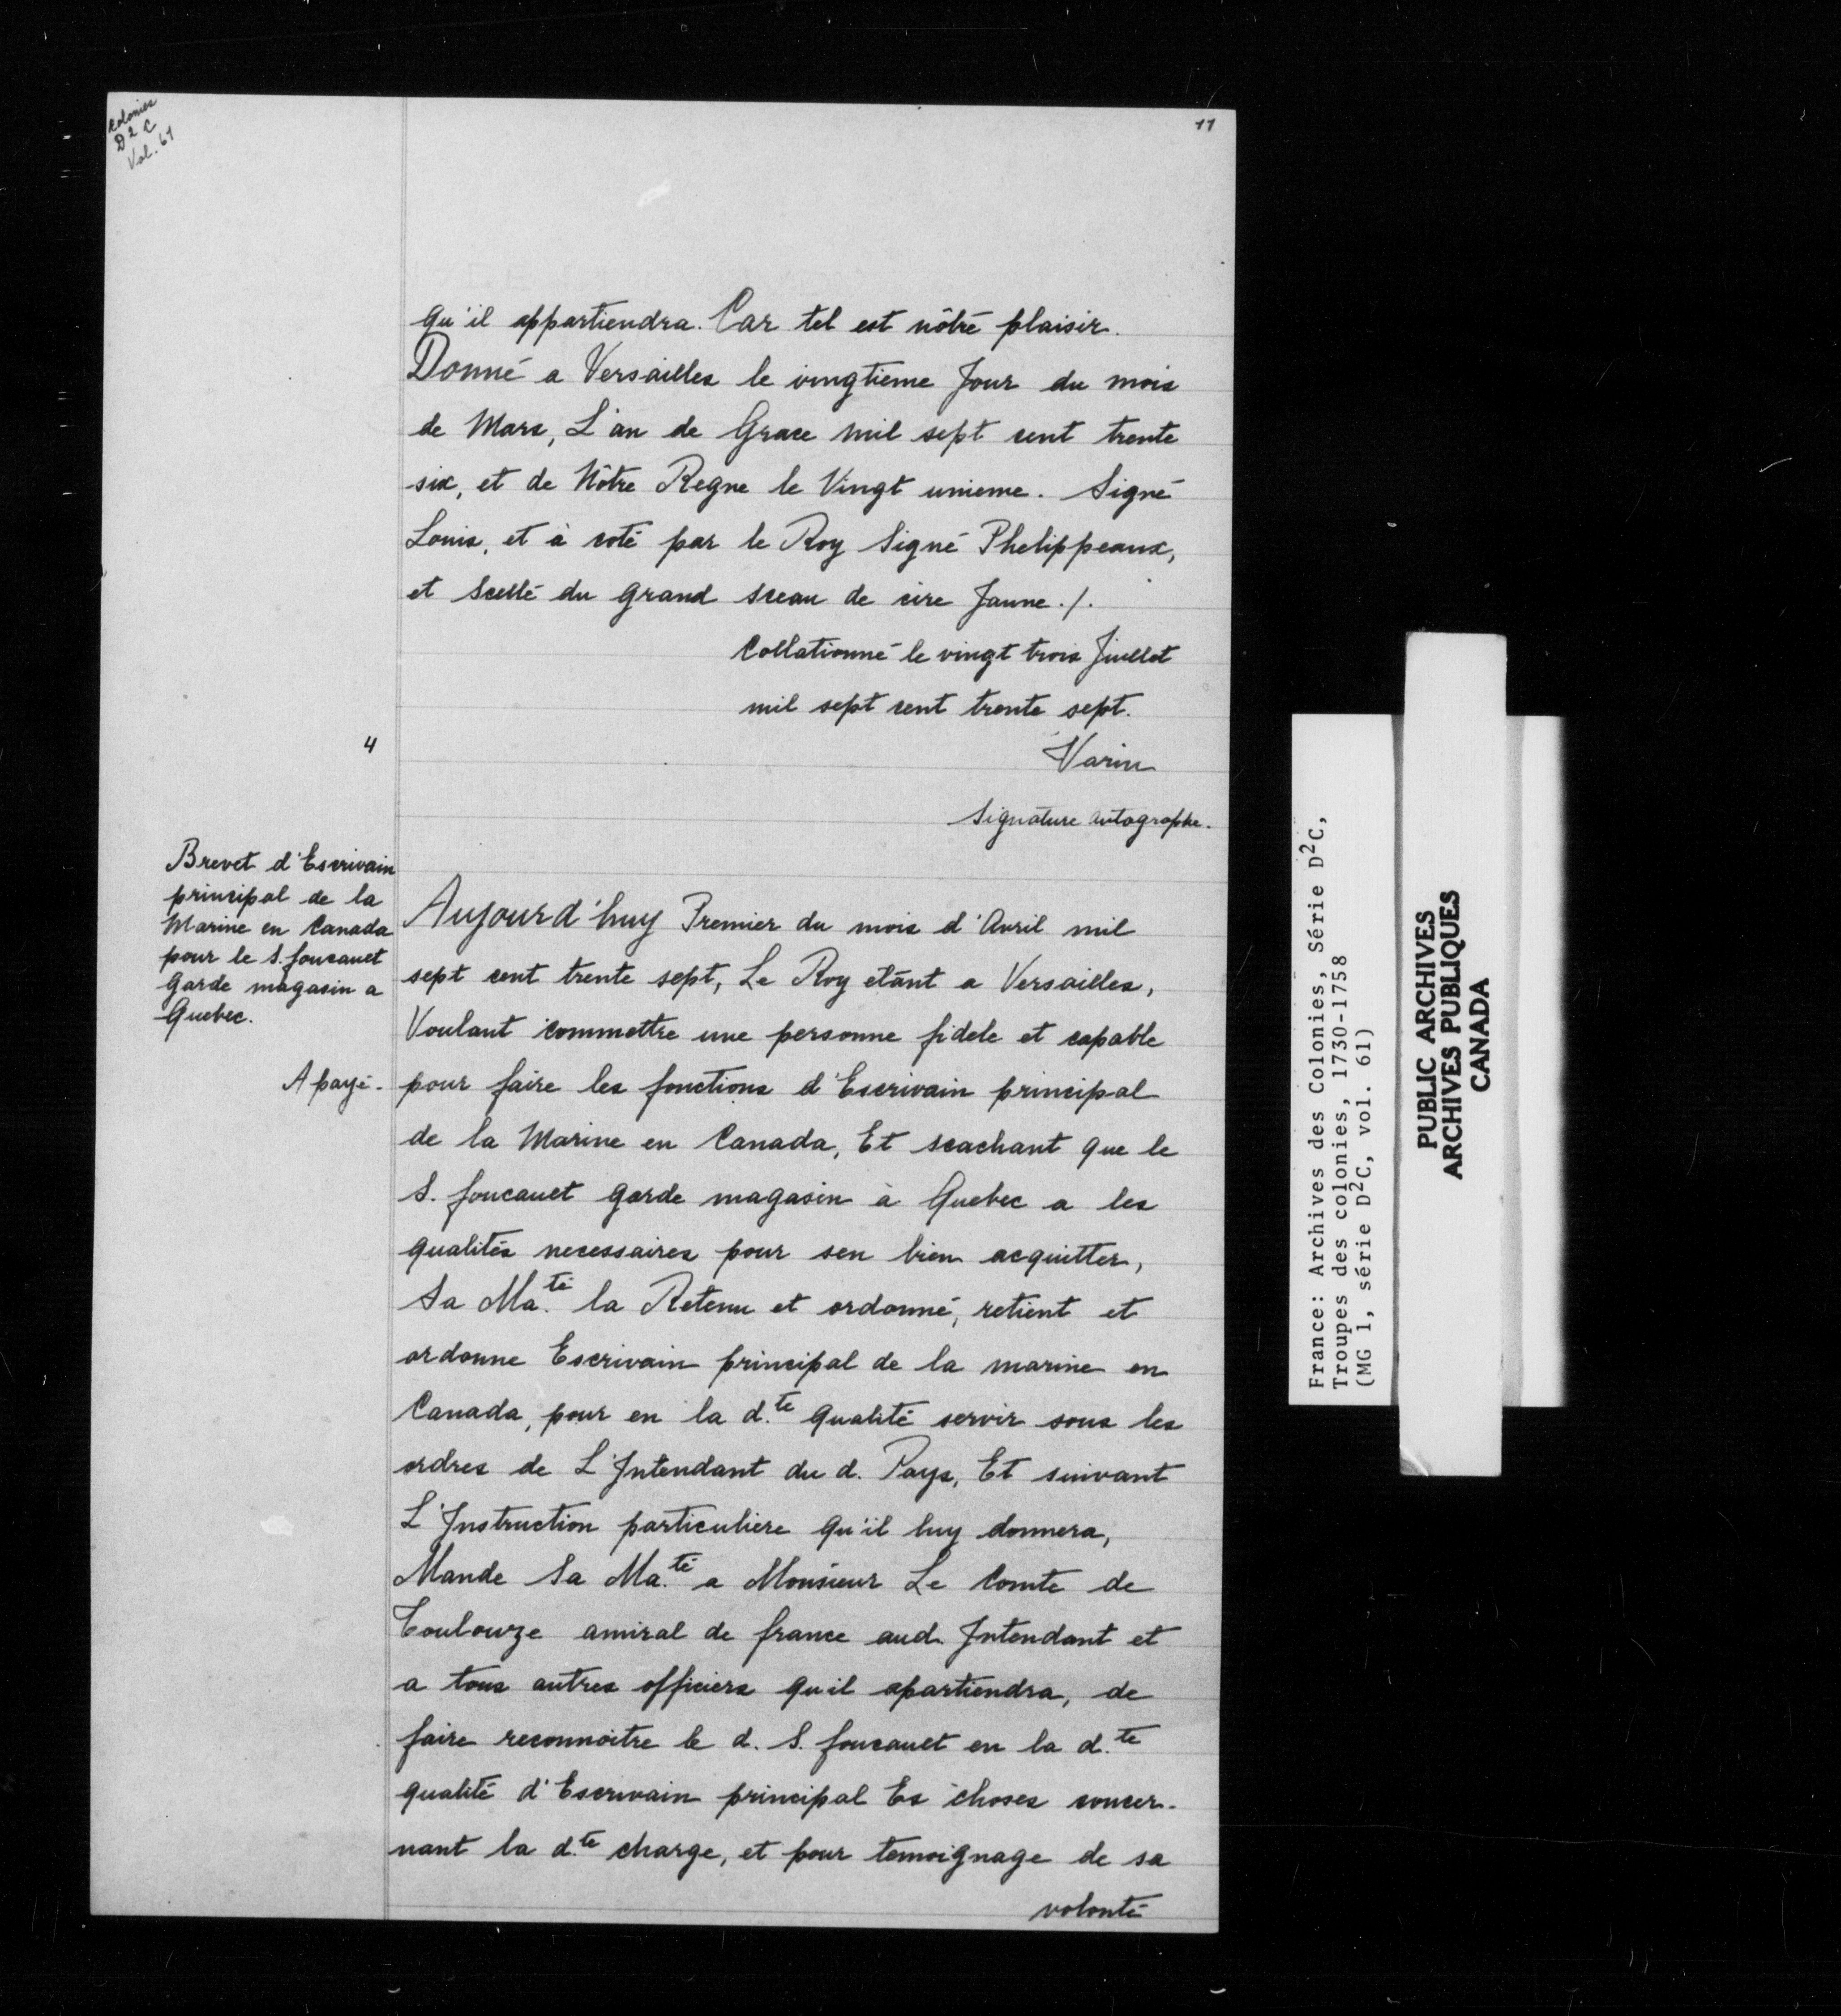 Colonies
D2C
Vol. 61
11
qu'il appartiendra. Car tel est nôtre plaisir.
Donné a Versailles le vingtieme Jour du mois
de Mars, L'an de Grace mil sept cent trente
six, et de Nôtre Regne le Vingt unieme. Signé
Louis, et à coté par le Roy Signé Phelippeaux,
et Scellé du grand sceau de cire Jaune./.
Collationné le vingt trois Juillet
mil sept cent trente sept.
Varin
Signature autographe.
4
Brevet d'Escrivain
principal de la
Marine en Canada
pour le S. foucauet
garde magasin a
Quebec.
A payé.
Aujourd'huy Premier du mois d'Avril mil
sept cent trente sept, Le Roy etant a Versailles,
Voulant commettre une personne fidele et capable
pour faire les fonctions d'Escrivain principal
de la Marine en Canada, Et scachant que le
S. foucauet garde magasin à Quebec a les
qualités necessaires pour sen bien acquitter,
Sa Ma.té la Retenu et ordonné, retient et
ordonne Escrivain principal de la marine en
Canada, pour en la d.te qualité servir sous les
ordres de L'Intendant du d. Pays, Et suivant
L'Instruction particuliere qu'il luy donnera,
Mande Sa Ma.té a Monsieur Le Comte de
Toulouze amiral de france aud. Intendant et
a tous autres officiers qu'il apartiendra, de
faire reconnoitre le d. S. foucauet en la d.te
qualité d'Escrivain principal Es choses concer-
nant la d.te charge, et pour temoignage de sa
volonté
France: Archives des Colonies, Série D²C,
Troupes des colonies, 1730-1758
(MG 1, série D²C, vol. 61)
PUBLIC ARCHIVES
ARCHIVES PUBLIQUES
CANADA